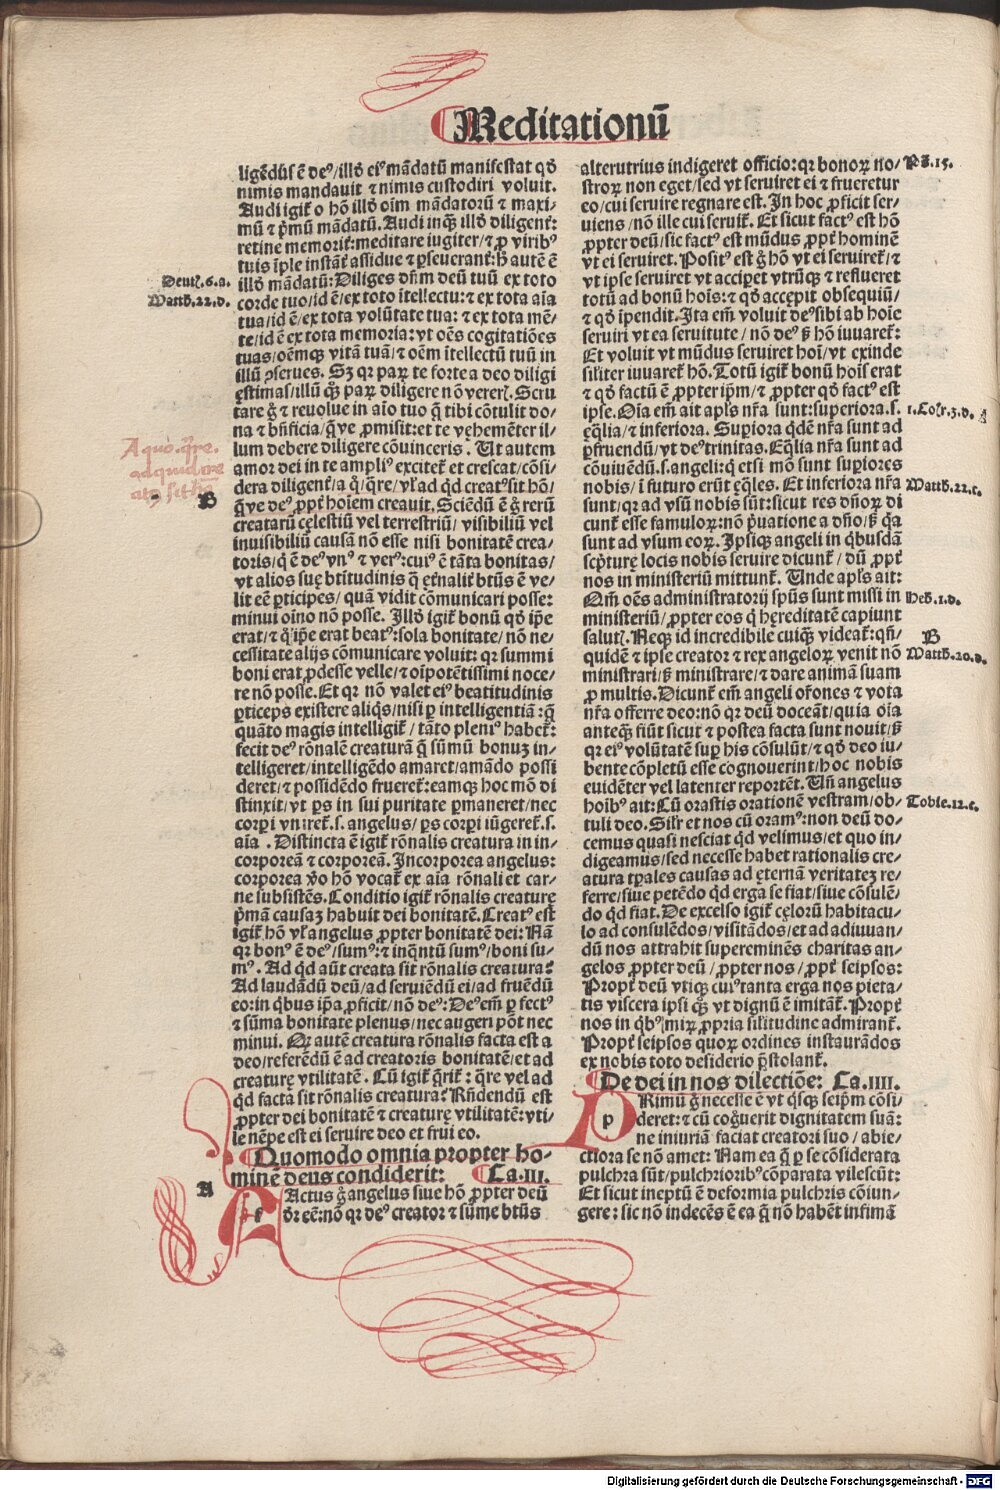 Meditationū
ligēdꝰ ē deꝰ/illđ eiꝰ mādatū manifestat qđ
nimis mandauit ⁊ nimis custodiri voluit.
Audi igit̄ o hō illđ oīm mādatorū ⁊ maxi-
mū ⁊ pͥmū mādatū. Audi inqȝ illđ diligent̄:
retine memorit̄: meditare iugiter/⁊ ꝓ viribꝰ
tuis īple instāt̄ assidue ⁊ ꝑseuerant̄: h̄ autē ē
Deut. 6. a.
illđ mādatū: Diliges dn̄m deū tuū ex toto
Matth. 22. d.
corde tuo/id ē/ex toto ītellectu: ⁊ ex tota aīa
tua/id ē/ex tota volūtate tua: ⁊ ex tota mē-
te/id ē ex tota memoria: vt oēs cogitatiōes
tuas/oēmqȝ vitā tuā/⁊ oēm ītellectū tuū in
illū ꝯferues. Sȝ qr paꝝ te forte a deo diligi
ęstimas/illū qȝ paꝝ diligere nō vererꝭ. Scru
tare ḡ ⁊ reuolue in aīo tuo q̄ tibi cōtulit do-
na ⁊ bn̄ficia/q̄ve ꝓmisit: et te vęhemēter il-
A quo. q̄re.
lum debere diligere cōuinceris. Ut autem
ad quid cre
amor dei in te ampliꝰ excitet̄ et crescat/cōsi-
atꝰ sit hō
dera diligent̄/a q̊/q̄re/vl̄ ad qͥd creatꝰ sit hō/
B
q̄ve deꝰ ꝓpt̄ hoīem creauit. Sciēdū ē ḡ rerū
creatarū cęlestiū vel terrestriū/visibiliū vel
inuisibiliū causā nō esse nisi bonitatē crea-
toris/qͥ ē deꝰ vnꝰ ⁊ verꝰ: cuiꝰ ē tāta bonitas/
vt alios suę btītudinis q̄ et̄nalit̄ btūs ē ve-
lit eē ꝑticipes/quā vidit cōmunicari posse:
minui oīno nō posse. Illđ igit̄ bonū qđ ip̄e
erat/⁊ qͥ ip̄e erat beatꝰ: sola bonitate/nō ne-
cessitate alijs cōmunicare voluit: qr summi
boni erat ꝓdesse velle/⁊ oīpotētissimi noce-
re nō posse. Et qr nō valet eiꝰ beatitudinis
ꝑticeps existere aliqͥs/nisi ꝑ intelligentiā: q̄
quāto magis intelligit̄/tāto pleniꝰ habet̄:
fecit deꝰ rōnalē creaturā q̄ sūmū bonuȝ in-
telligeret/intelligēdo amaret/amādo possi
deret/⁊ possidēdo frueret̄: eamqȝ hoc mō di
stinxit/vt ꝑs in sui puritate ꝑmaneret/nec
corꝑi vniret̄. s. angelus/ꝑs corꝑi iūgeret̄. s.
aīa. Distincta ē igit̄ rōnalis creatura in in-
corporeā ⁊ corporeā. Incorporea angelus:
corporea v̊o hō vocat̄ ex aīa rōnali et car-
ne subsistēs. Conditio igit̄ rōnalis creaturę
pͥmā causaȝ habuit dei bonitatē. Creatꝰ est
igit̄ hō vl̄ angelus ꝓpter bonitatē dei: Nā
qr bonꝰ ē deꝰ/sumꝰ: ⁊ inq̄ntū sumꝰ/boni su-
mꝰ. Ad qͥd aūt creata sit rōnalis creatura?
Ad laudādū deū/ad seruiēdū ei/ad fruēdū
eo: in qͥbus ip̄a ꝓficit/nō deꝰ: Deꝰ em̄ ꝑfectꝰ
⁊ sūma bonitate plenus/nec augeri pōt nec
minui. Qr autē creatura rōnalis facta est a
deo/referēdū ē ad creatoris bonitatē/et ad
creaturę vtilitatē. Cū igit̄ q̄rit̄: q̄re vel ad
qͥd facta sit rōnalis creatura? Rn̄dendū est
ꝓpter dei bonitatē ⁊ creaturę vtilitatē: vti-
le nēpe est ei seruire deo et frui eo.
Quomodo omnia propter ho-
minē deus condiderit: Ca. III.
A
f Actus ḡ angelus siue hō ꝓpter deū
dr̄ eē: nō qr deꝰ creator ⁊ sūme btūs
alterutrius indigeret officio: qr bonoꝝ no/
Ps. 15.
stroꝝ non eget/sed vt seruiret ei ⁊ frueretur
eo/cui seruire regnare est. In hoc ꝓficit ser-
uiens/nō ille cui seruit̄. Et sicut factꝰ est hō
ꝓpter deū/sic factꝰ est mūdus ꝓpt̄ hominē
vt ei seruiret. Positꝰ est ḡ hō vt ei seruiret̄/⁊
vt ip̄e seruiret vt acciꝑet vtrūqȝ ⁊ reflueret
totū ad bonū hoīs: ⁊ qđ accępit obsequiū/
⁊ qđ īpendit. Ita em̄ voluit deꝰ sibi ab hoīe
seruiri vt ea seruitute/nō deꝰ sȝ hō iuuaret̄:
Et voluit vt mūdus seruiret hoī/vt exinde
siliter iuuaret̄ hō. Totū igit̄ bonū hoīs erat
⁊ qđ factū ē ꝓpter ip̄m/⁊ ꝓpter qđ factꝰ est
ipse. Oīa em̄ ait apl̄s nr̄a sunt: superiora. s.
1. Cor. 3. d.
ęq̄lia/⁊ inferiora. Suꝑiora qͥdē nr̄a sunt ad
ꝑfruendū/vt deꝰ trinitas. Eq̄lia nr̄a sunt ad
cōuiuēdū. s. angeli: qͥ etsi mō sunt suꝑiores
nobis/ī futuro erūt ęq̄les. Et inferiora nr̄a
Matth. 22. c.
sunt/qr ad vsū nobis sūt: sicut res dn̄oꝝ di
cunt̄ esse famuloꝝ: nō pͥuatione a dn̄o/sȝ q̄a
sunt ad vsum eoꝝ. Ipsiqȝ angeli in qͥbusdā
scͥpturę locis nobis seruire dicunt̄/dū ꝓpt̄
nos in ministeriū mittunt̄. Unde apl̄s ait:
Qm̄ oēs administratorij sp̄us sunt missi in
Heb. 1. d.
ministeriū/ꝓpter eos qͥ hęreditatē capiunt
B
salutꝭ. Neqȝ id incredibile cuiqȝ videat̄: qn̄/
quidē ⁊ ipse creator ⁊ rex angeloꝝ venit nō
Matth. 20. d.
ministrari/sȝ ministrare/⁊ dare animā suam
ꝓ multis. Dicunt̄ em̄ angeli or̄ones ⁊ vota
nr̄a offerre deo: nō qr deū doceāt/quia oīa
anteqȝ fiūt sicut ⁊ postea facta sunt nouit/sȝ
qr eiꝰ volūtatē suꝑ his cōsulūt/⁊ qđ deo iu-
bente cōpletū esse cognouerint/hoc nobis
euidēter vel latenter reportēt. Un̄ angelus
hoībꝰ ait: Cū orastis orationē vestram/ob/
Tobie. 12. c.
tuli deo. Silr̄ et nos cū oramꝰ: non deū do-
cemus quasi nesciat qͥd velimus/et quo in-
digeamus/sed necesse habet rationalis cre-
atura tꝑales causas ad ęternā veritateȝ re-
ferre/siue petēdo qͥd erga se fiat/siue cōsulē-
do qͥd fiat. De excelso igit̄ cęlorū habitacu-
lo ad consulēdos/visitādos/et ad adiuuan-
dū nos attrahit supereminēs charitas an-
gelos ꝓpter deū/ꝓpter nos/ꝓpt̄ seipsos:
Propt̄ deū vtiqȝ cuiꝰ tanta erga nos pieta-
tis viscera ipsi qͥqȝ vt dignū ē imitāt̄. Propt̄
nos in qͥbꝰ mirꝭ ꝓpria silitudinē admirant̄.
Propt̄ seipsos quoꝝ ordines instaurādos
ex nobis toto desiderio p̄stolant̄.
De dei in nos dilectiōe: Ca. IIII.
p Rimū ḡ necesse ē vt qͥsqȝ seip̄m cōsi-
deret: ⁊ cū cog̊uerit dignitatem suā:
ne iniuriā faciat creatori suo/abie-
ctiora se nō amet: Nam ea q̄ ꝑ se cōsiderata
pulchra sūt/pulchrioribꝰ cōparata vilescūt:
Et sicut ineptū ē deformia pulchris cōiun-
gere: sic nō indecēs ē ea q̄ nō habēt infimā
Digitalisierung gefördert durch die Deutsche Forschungsgemeinschaft - DFG